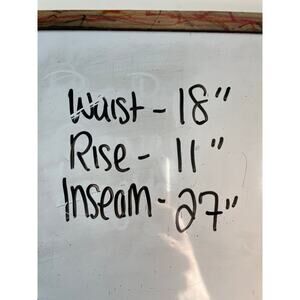 Waist - 18"
Rise - 11"
Inseam - 27"